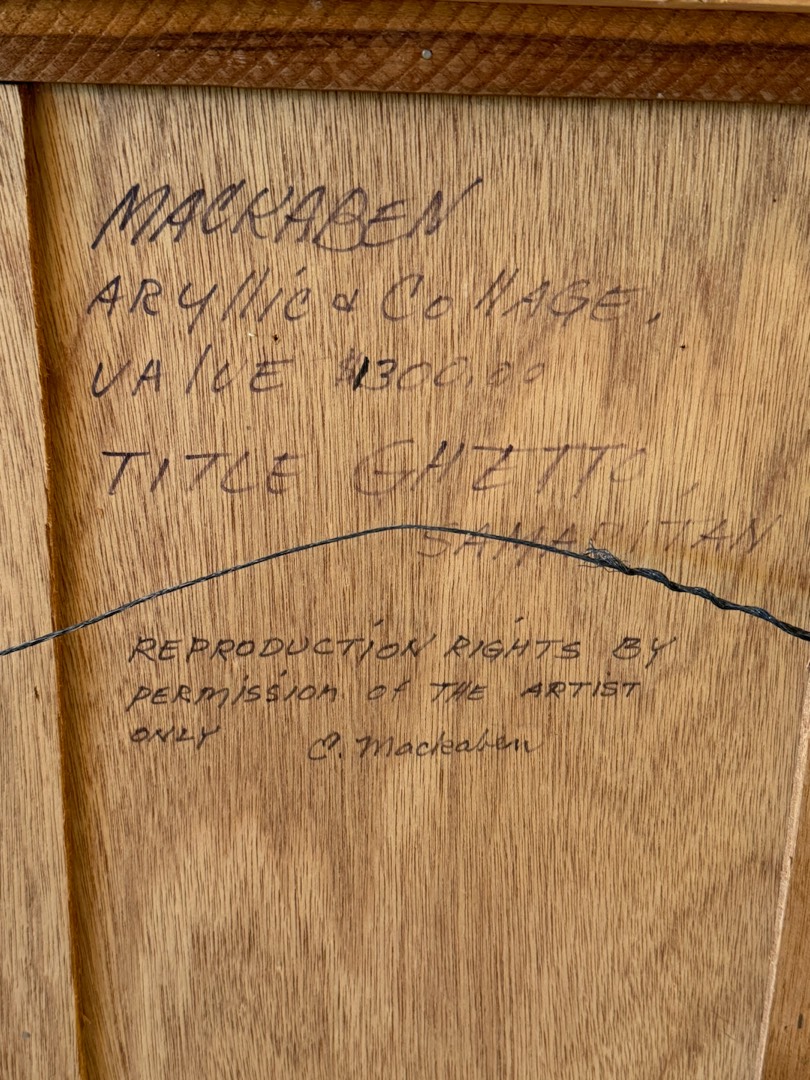 MACKABEN
ARYllic & CollAGE.
VALUE $300.00
TITLE GHETTO,
SAMARITAN
REPRODUCTION RIGHTS BY
PERMISSION OF THE ARTIST
ONLY C. Mackaben